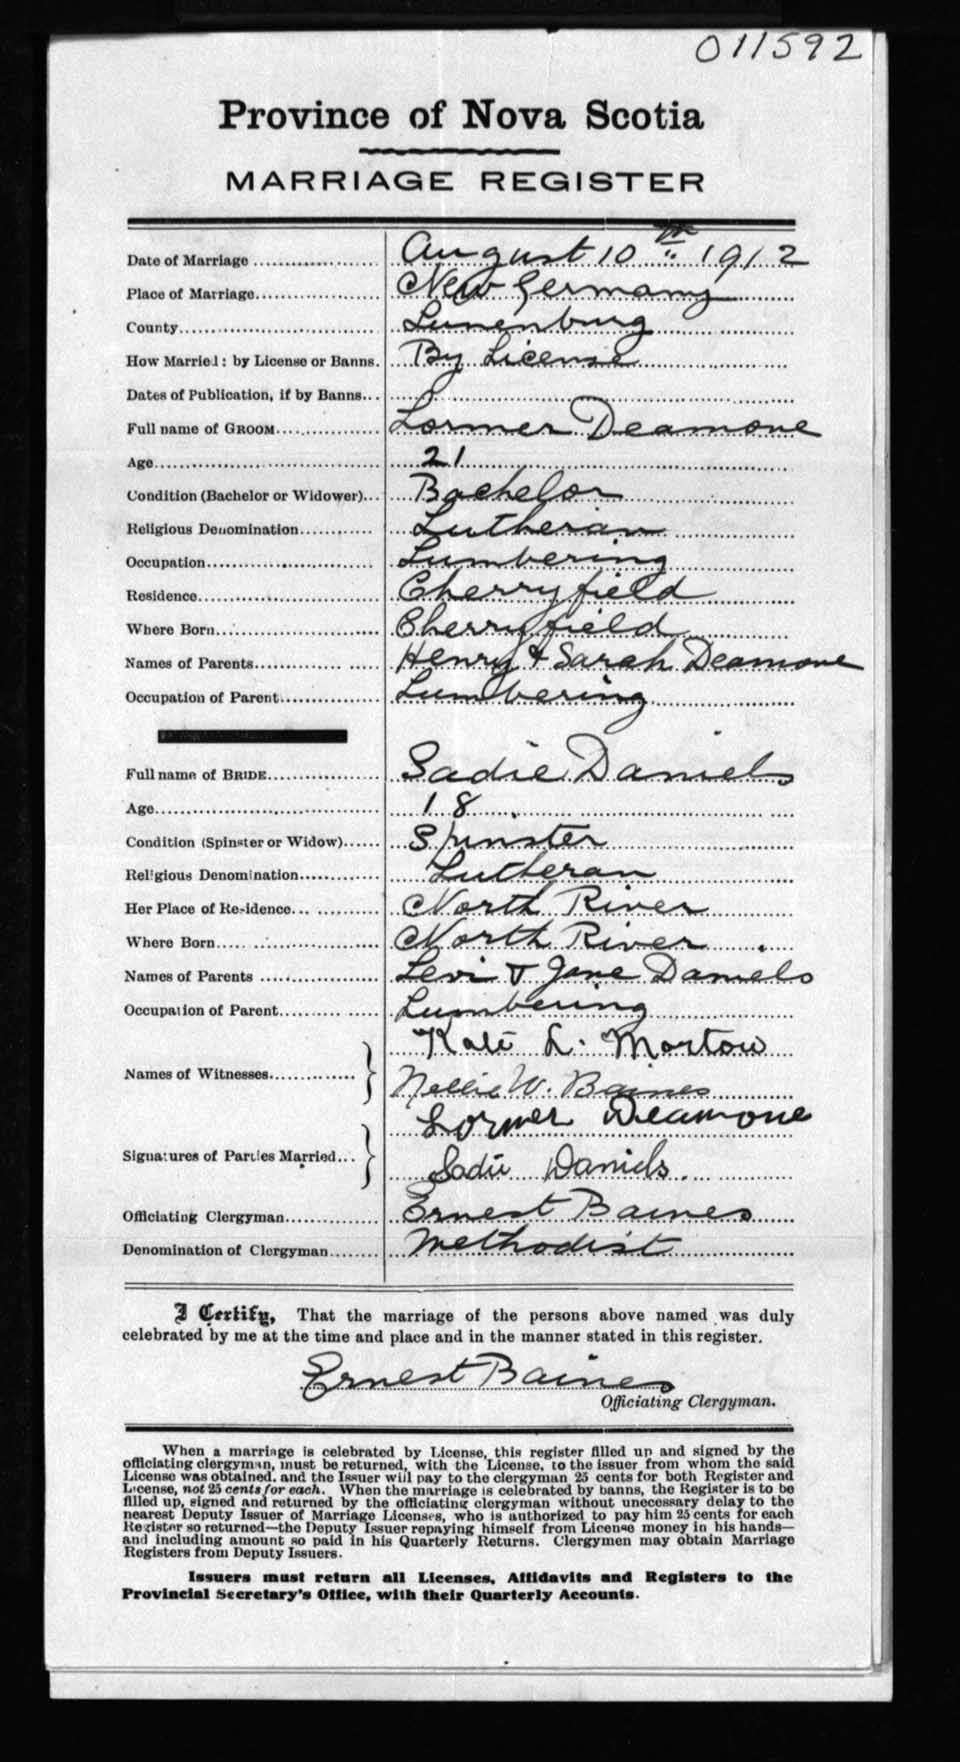 011592
Province of Nova Scotia
MARRIAGE REGISTER
Date of Marriage August 10th 1912
Place of Marriage New Germany
County Lunenburg
How Married: by License or Banns. By License
Dates of Publication, if by Banns
Full name of GROOM Lormer Deamone
Age 21
Condition (Bachelor or Widower) Bachelor
Religious Denomination Lutheran
Occupation Lumbering
Residence Cherryfield
Where Born Cherryfield
Names of Parents Henry & Sarah Deamone
Occupation of Parent Lumbering
Full name of BRIDE Sadie Daniels
Age 18
Condition (Spinster or Widow) Spinster
Religious Denomination Lutheran
Her Place of Residence North River
Where Born North River
Names of Parents Levi & Jane Daniels
Occupation of Parent Lumbering
Kate L. Morton
Names of Witnesses
Nellie W. Baines
Lormer Deamone
Signatures of Parties Married
Sadie Daniels
Officiating Clergyman Ernest Baines
Denomination of Clergyman Methodist
I Certify, That the marriage of the persons above named was duly
celebrated by me at the time and place and in the manner stated in this register.
Ernest Baines
Officiating Clergyman.
When a marriage is celebrated by License, this register filled up and signed by the
officiating clergyman, must be returned, with the License, to the issuer from whom the said
License was obtained, and the Issuer will pay to the clergyman 25 cents for both Register and
License, not 25 cents for each. When the marriage is celebrated by banns, the Register is to be
filled up, signed and returned by the officiating clergyman without unecessary delay to the
nearest Deputy Issuer of Marriage Licenses, who is authorized to pay him 25 cents for each
Register so returned—the Deputy Issuer repaying himself from License money in his hands—
and including amount so paid in his Quarterly Returns. Clergymen may obtain Marriage
Registers from Deputy Issuers.
Issuers must return all Licenses, Affidavits and Registers to the
Provincial Secretary's Office, with their Quarterly Accounts.